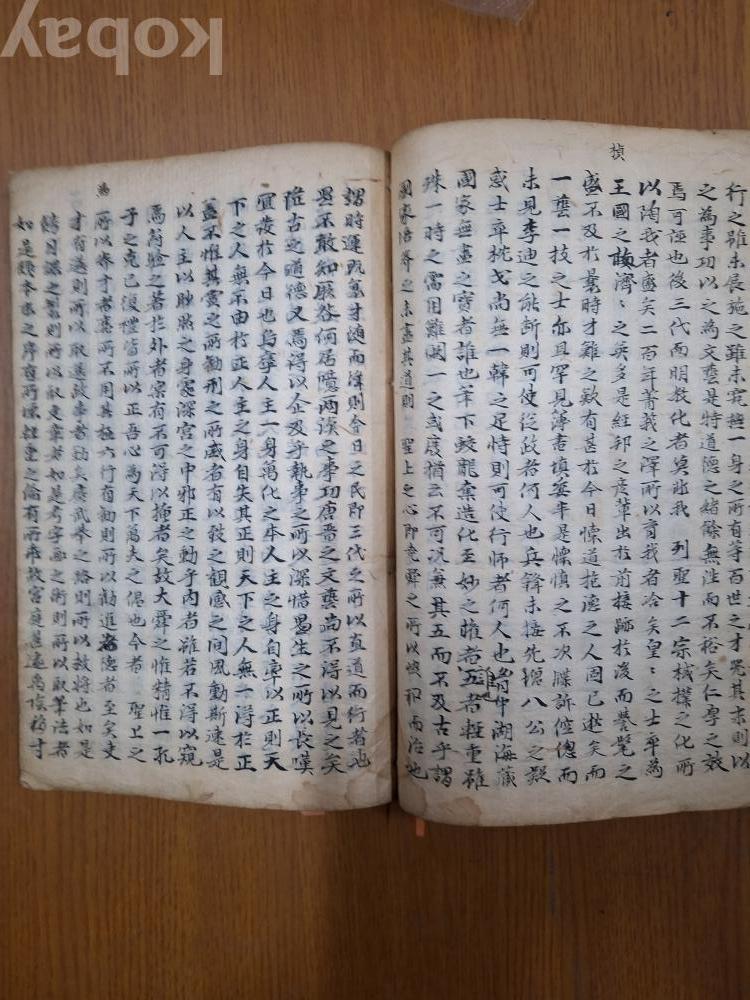 kobay
楨
行之雖未展施之雖未究極一身之所有等百世之才究其求則以
之為事功以之為文藝是特道德之緒餘無往而不裕矣仁學之效
焉可誣也後三代而明教化者莫我 列聖十二宗棫樸之化所
以陶我者盛矣二百年菁莪之澤所以育我者洽矣皇皇之士平為
王國之楨濟濟之英多是經邦之彦輩出於前接跡於後而譽髦之
盛不及於曩時才難之歎有甚於今日懷道抱德之人固已逃矣而
一藝一技之士亦且罕見薄書填委半是懍慎之不次牒訴倥傯而
未見李迪之能斷則可使從政者何人也兵鋒未接先 八公之疑
惑士卒枕戈尚無一韓之足恃則可使行師者何人也 中湖海藏
國家無盡之寶者誰也筆下蛟龍奪造化至妙之權者五者輕重雖
殊一時之需用難闕一之或廢猶云不可况無其五而不及古乎謂
國家培養之未盡其道則 聖上之心即堯舜之所以 而治也
謂時運既 才隨而降則今日之民即三代之所以直道而行者也
愚不敢知厥咎何居噫兩漢之事功唐晋之文藝尚不得以見之矣
隆古之道德又焉得以企及乎執事之所以深惜愚生之所以長嘆
宜發於今日也烏乎人主一身萬化之本人主之身自率以正則天
下之人無不由於正人主之身自失其正則天下之人無一得於正
盖不惟其賞之所勸刑之所威者有以致之觀感之間風動斯速是
以人主以眇然之身處深宮之中邪正之動乎内者雖若不得以窺
焉符驗之著於外者案有不可得以掩者矣故大舜之惟精惟一孔
子之克己復禮皆所以正吾心為天下萬夫之倡也今者 聖上之
為
所以养才者蔑所不用其極六行有勸則所以勸進 德者至矣吏
才有選則所以取達政事者勤矣慶武舉之路則所以教將也如是
月課之製則所以取文章者如是考字畫之術則所以取筆法者
如是錢本末之序有所 輕重之倫有所 故宮庭